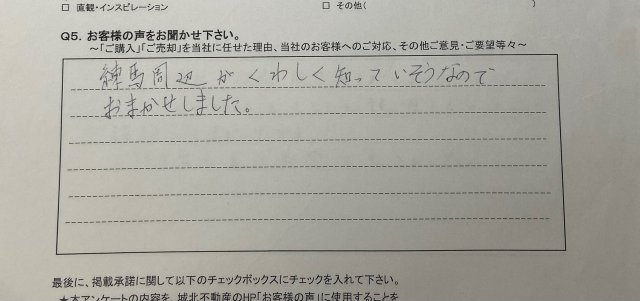 □ 直観・インスピレーション □ その他( )
Q5. お客様の声をお聞かせ下さい。
～「ご購入」「ご売却」を当社に任せた理由、当社のお客様へのご対応、その他ご意見・ご要望等々～
練馬周辺がくわしく知っていそうなので
おまかせしました。
最後に、掲載承諾に関して以下のチェックボックスにチェックを入れて下さい。
★本アンケートの内容を、城北不動産のHP「お客様の声」に使用することを